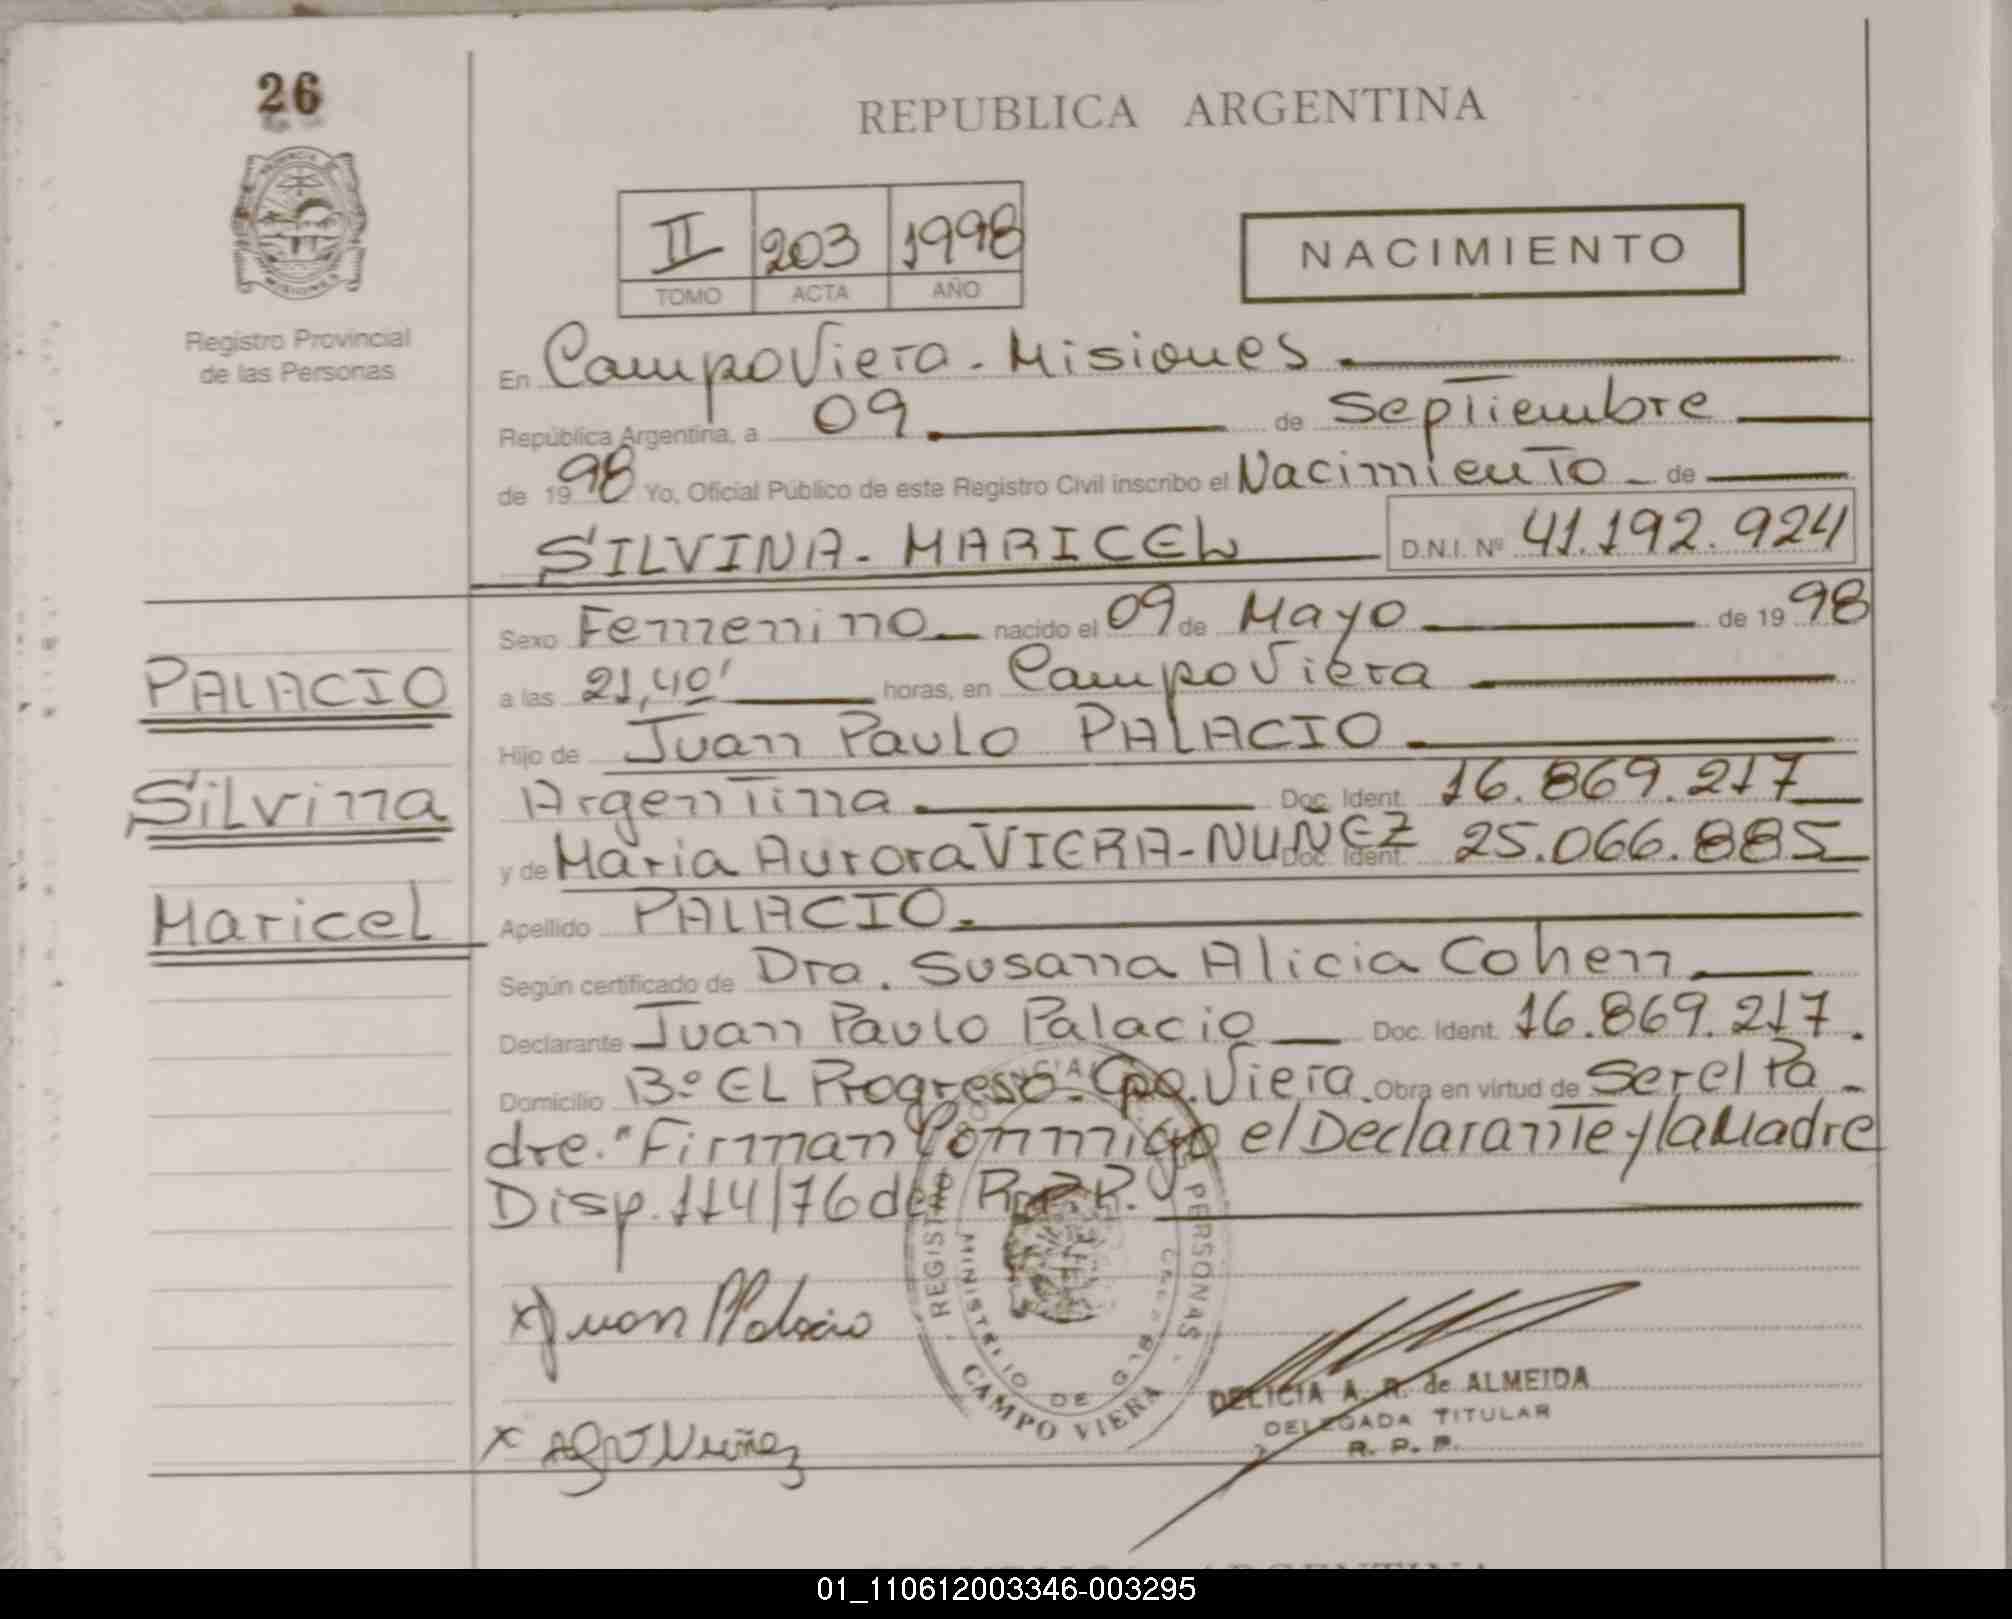 26
REPUBLICA ARGENTINA
II 203 1998
TOMO ACTA AÑO
NACIMIENTO
Registro Provincial
de las Personas
En Campo Viera - Misiones
República Argentina, a 09 de Septiembre
de 1998 Yo, Oficial Público de este Registro Civil inscribo el Nacimiento de
SILVINA - MARICEL D.N.I. Nº 41.192.924
Sexo Femenino nacido el 09 de Mayo de 1998
PALACIO
a las 21,40' horas, en Campo Viera
Hijo de Juan Paulo PALACIO
Silvina
Argentina Doc. Ident. 16.869.217
y de Maria Aurora VIERA - NUNEZ Doc. Ident. 25.066.885
Maricel
Apellido PALACIO.
Según certificado de Dra. Susana Alicia Cohen
Declarante Juan Paulo Palacio Doc. Ident. 16.869.217.
Domicilio Bº EL Progreso - Cpo. Viera. Obra en virtud de Ser el Pa-
dre." Firman Conmigo el Declarante y la Madre
Disp. 114/76 del R.P.P.
x Juan P Palacio
REGISTRO PERSONAS
MINISTERIO DE GOB
CAMPO VIERA
DELICIA A. R. de ALMEIDA
DELEGADA TITULAR
R. P. P.
x Nuñez
REPUBLICA ARGENTINA
01_110612003346-003295